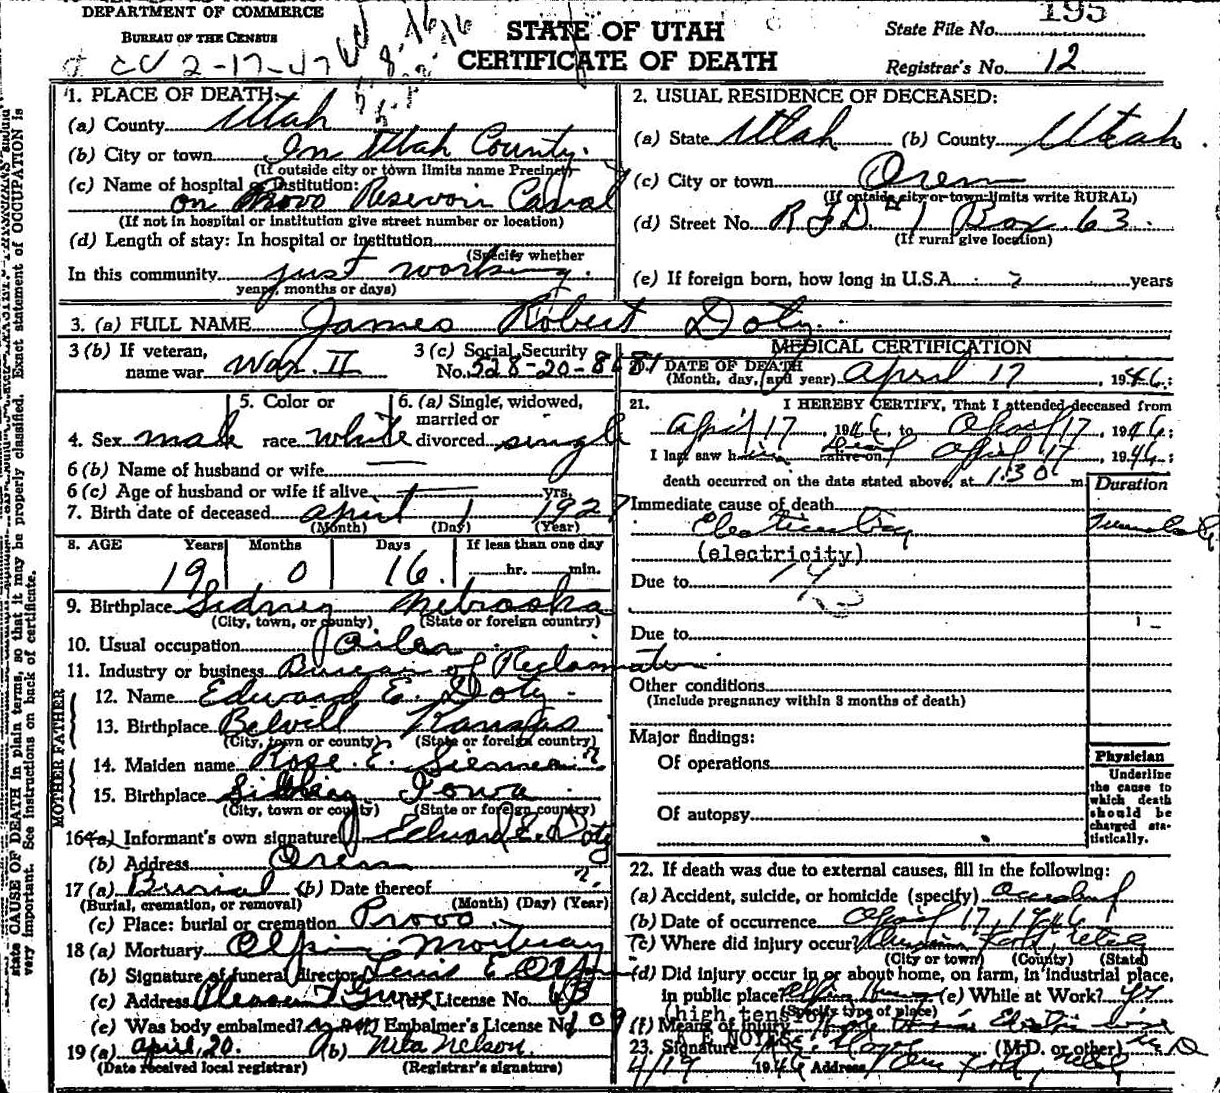 DEPARTMENT OF COMMERCE
BUREAU OF THE CENSUS
2-17-47
STATE OF UTAH
CERTIFICATE OF DEATH
195
State File No.
Registrar's No. 12
1. PLACE OF DEATH:
(a) County Utah
(b) City or town In Utah County.
(If outside city or town limits name Precinct)
(c) Name of hospital or institution:
on Provo Reservoir Canal
(If not in hospital or institution give street number or location)
(d) Length of stay: In hospital or institution
(Specify whether
In this community just working.
years, months or days)
2. USUAL RESIDENCE OF DECEASED:
(a) State Utah (b) County Utah
(c) City or town Orem
(If outside city or town limits write RURAL)
(d) Street No. R.F.D. #1 Box 63.
(If rural give location)
(e) If foreign born, how long in U.S.A. years
3. (a) FULL NAME James Robert Doty.
3 (b) If veteran, name war War II
3 (c) Social Security No. 528-20-8681
4. Sex male
5. Color or race white
6. (a) Single, widowed, married or divorced single
6 (b) Name of husband or wife
6 (c) Age of husband or wife if alive yrs.
7. Birth date of deceased April 1 1927
(Month) (Day) (Year)
8. AGE Years Months Days If less than one day
19 0 16. hr. min.
9. Birthplace Sidney Nebraska
(City, town, or county) (State or foreign country)
10. Usual occupation Oiler
11. Industry or business Bureau of Reclamation
FATHER
12. Name Edward E. Doty
13. Birthplace Belvill Kansas
(City, town or county) (State or foreign country)
MOTHER
14. Maiden name Rose E.
15. Birthplace Iowa
(City, town or county) (State or foreign country)
16 (a) Informant's own signature Edward E. Doty
(b) Address Orem
17 (a) Burial (b) Date thereof ?
(Burial, cremation, or removal) (Month) (Day) (Year)
(c) Place: burial or cremation Provo.
18 (a) Mortuary Olpin Mortuary
(b) Signature of funeral director Lewis E Olpin
(c) Address Pleasant Grove License No. 43
(e) Was body embalmed? Embalmer's License No. 109
19 (a) April, 20. (b) Nita Nelson.
(Date received local registrar) (Registrar's signature)
MEDICAL CERTIFICATION
20. DATE OF DEATH
(Month, day, and year) April 17, 1946;
21. I HEREBY CERTIFY, That I attended deceased from
April 17, 1946, to April 17, 1946;
I last saw him alive on April 17, 1946;
death occurred on the date stated above, at 1:30 m
Duration
Immediate cause of death
(electricity)
Due to
Due to
Other conditions
(Include pregnancy within 3 months of death)
Major findings:
Of operations
Of autopsy
Physician
Underline
the cause to
which death
should be
charged sta-
tistically.
22. If death was due to external causes, fill in the following:
(a) Accident, suicide, or homicide (specify) Accident
(b) Date of occurrence April 17, 1946
(c) Where did injury occur? American Fork, Utah
(City or town) (County) (State)
(d) Did injury occur in or about home, on farm, in industrial place,
in public place? (e) While at Work? yes
(Specify type of place)
(high tension)
(f) Means of injury Electric wire
A E NOYES
23. Signature (M.D. or other) M D
4/19 1946 Address Am Fork, Utah
state CAUSE OF DEATH in plain terms, so that it may be properly classified. Exact statement of OCCUPATION is
very important. See instructions on back of certificate.